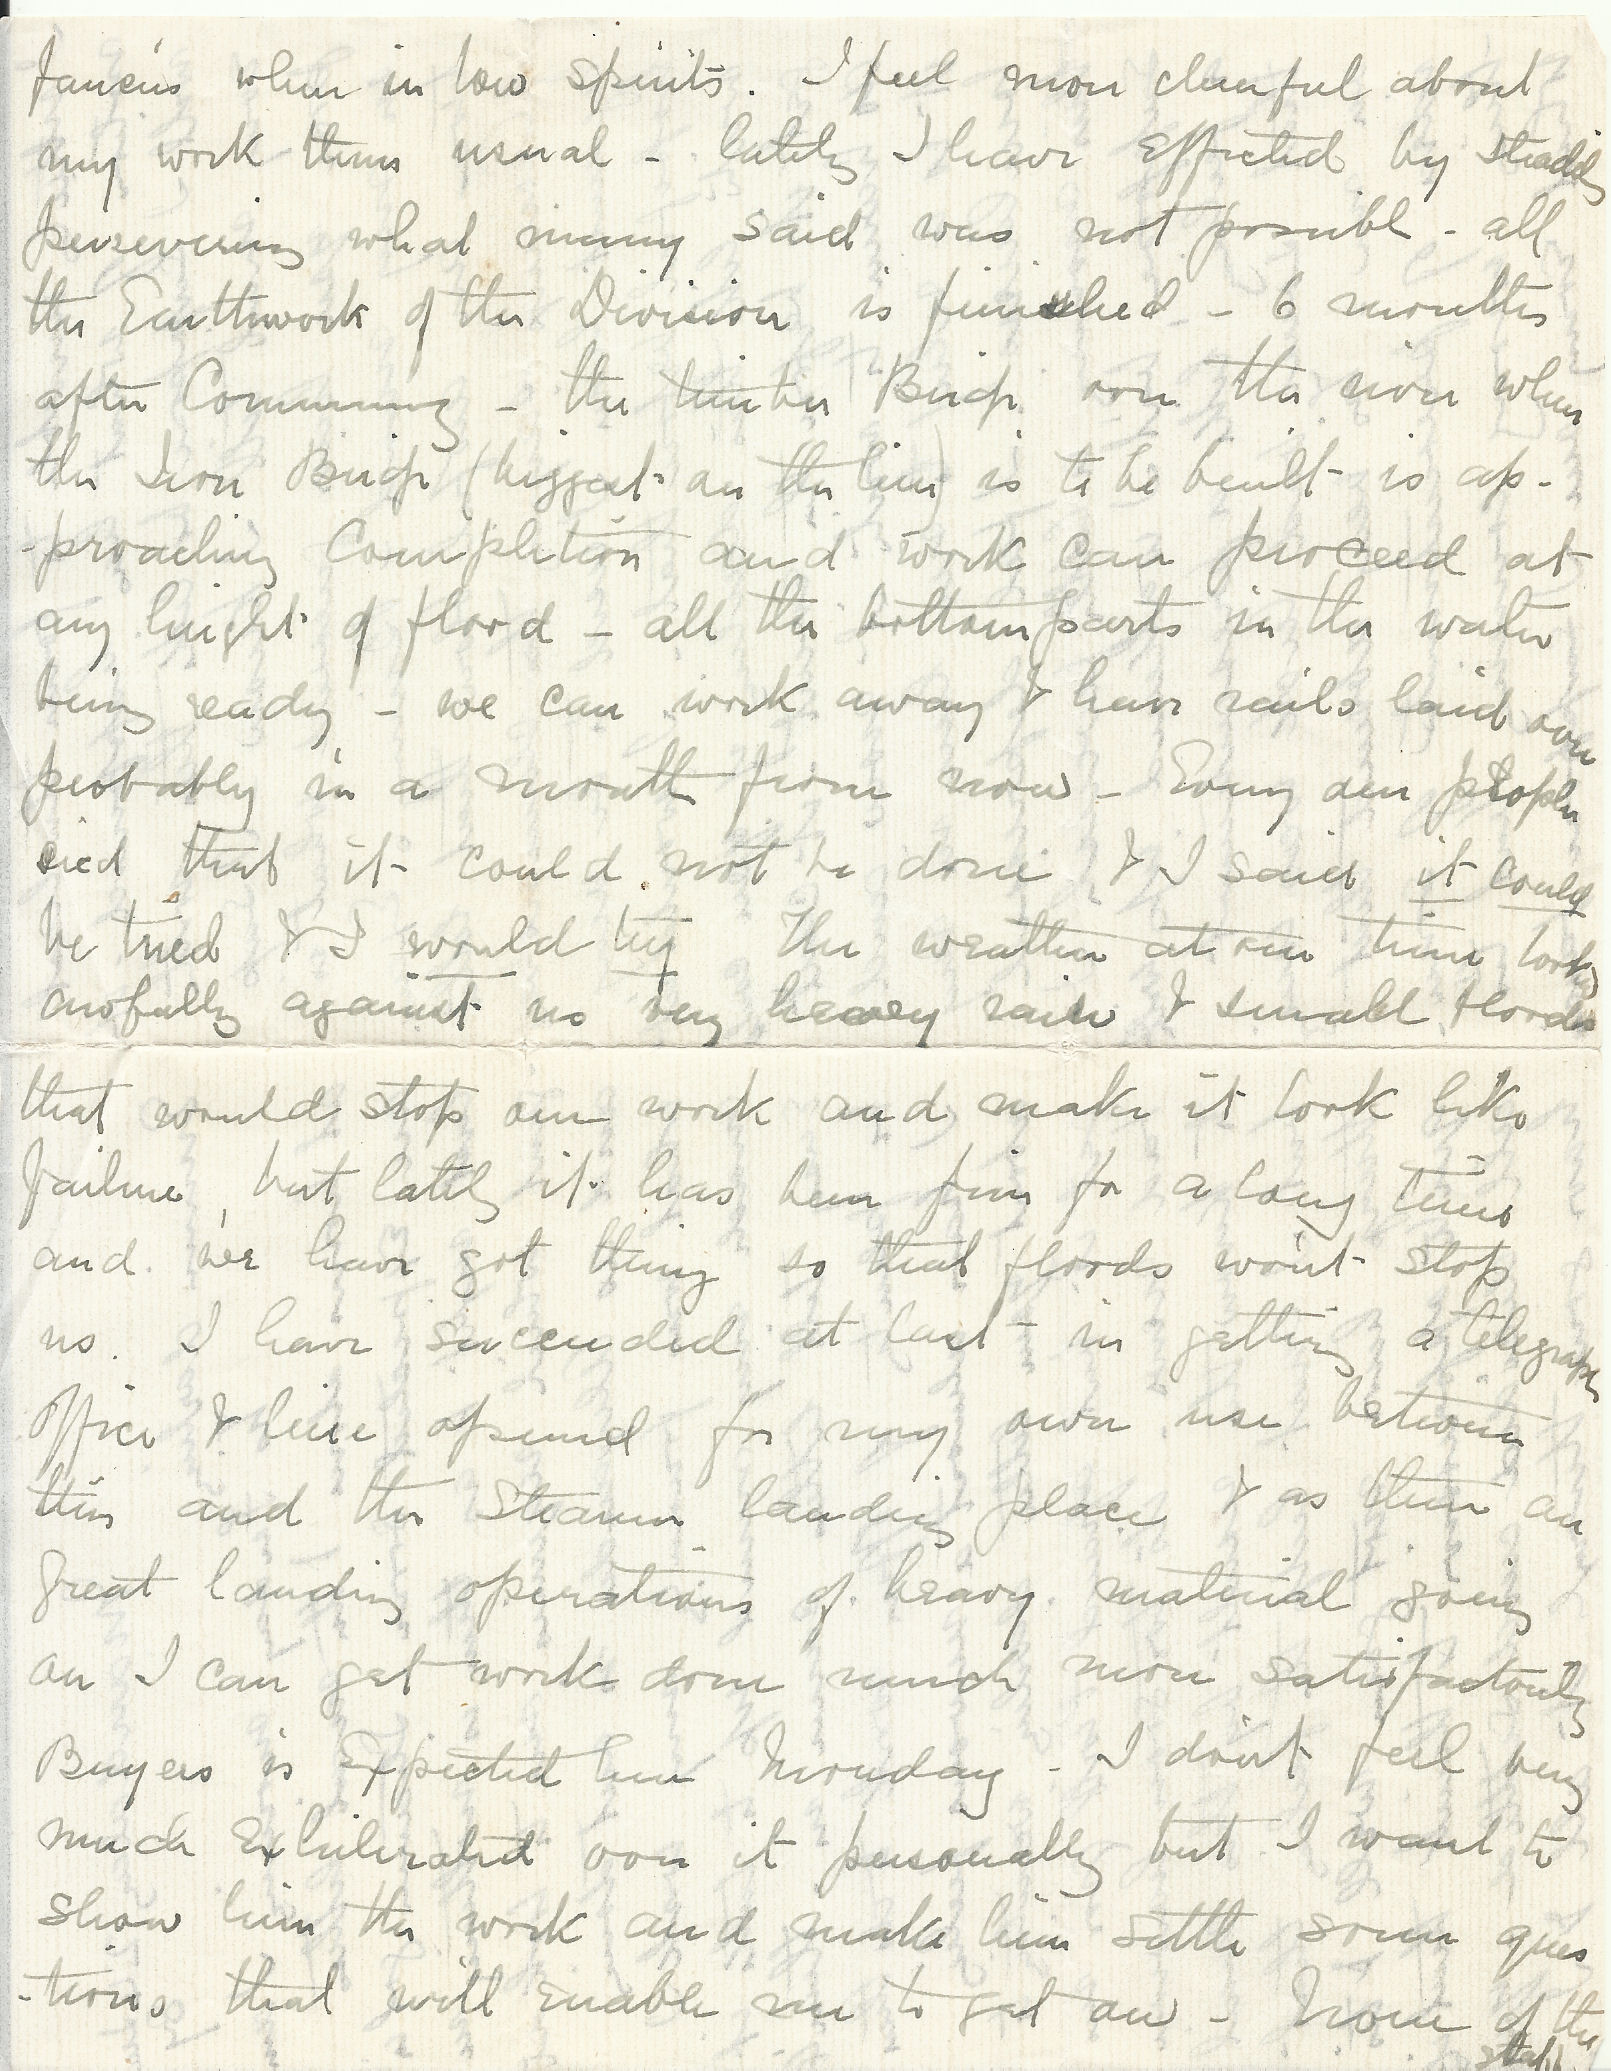 fancies when in low spirits. I feel more cheerful about
my work than usual - lately I have effected by steadily
persevering what many said was not possible - all
the Earthwork of the Division is finished - 6 months
after Commencing - the timber Bridge over the river when
the Iron Bridge (biggest on the line) is to be built is ap-
-proaching Completion and work can proceed at
any height of flood - all the bottom parts in the water
being ready - we can work away & have rails laid over
probably in a month from now - Every one
said that it could not be done & I said it could
be tried & I would try The weather at one time looked
awfully against us very heavy rain & small floods
that would stop our work and make it look like
failure, but lately it has been fine for a long time
and we have got things so that floods won't stop
us. I have succeeded at last in getting a telegraph
Office & line opened for my own use between
this and the Steamer landing place & as there are
great landing operations of heavy material going
on I can get work done much more satisfactorily
Buyers is Expected here Monday - I don't feel very
much Exhilerated over it personally but I want to
show him the work and make him settle some ques
-tions that will enable me to get on - None of the
staff